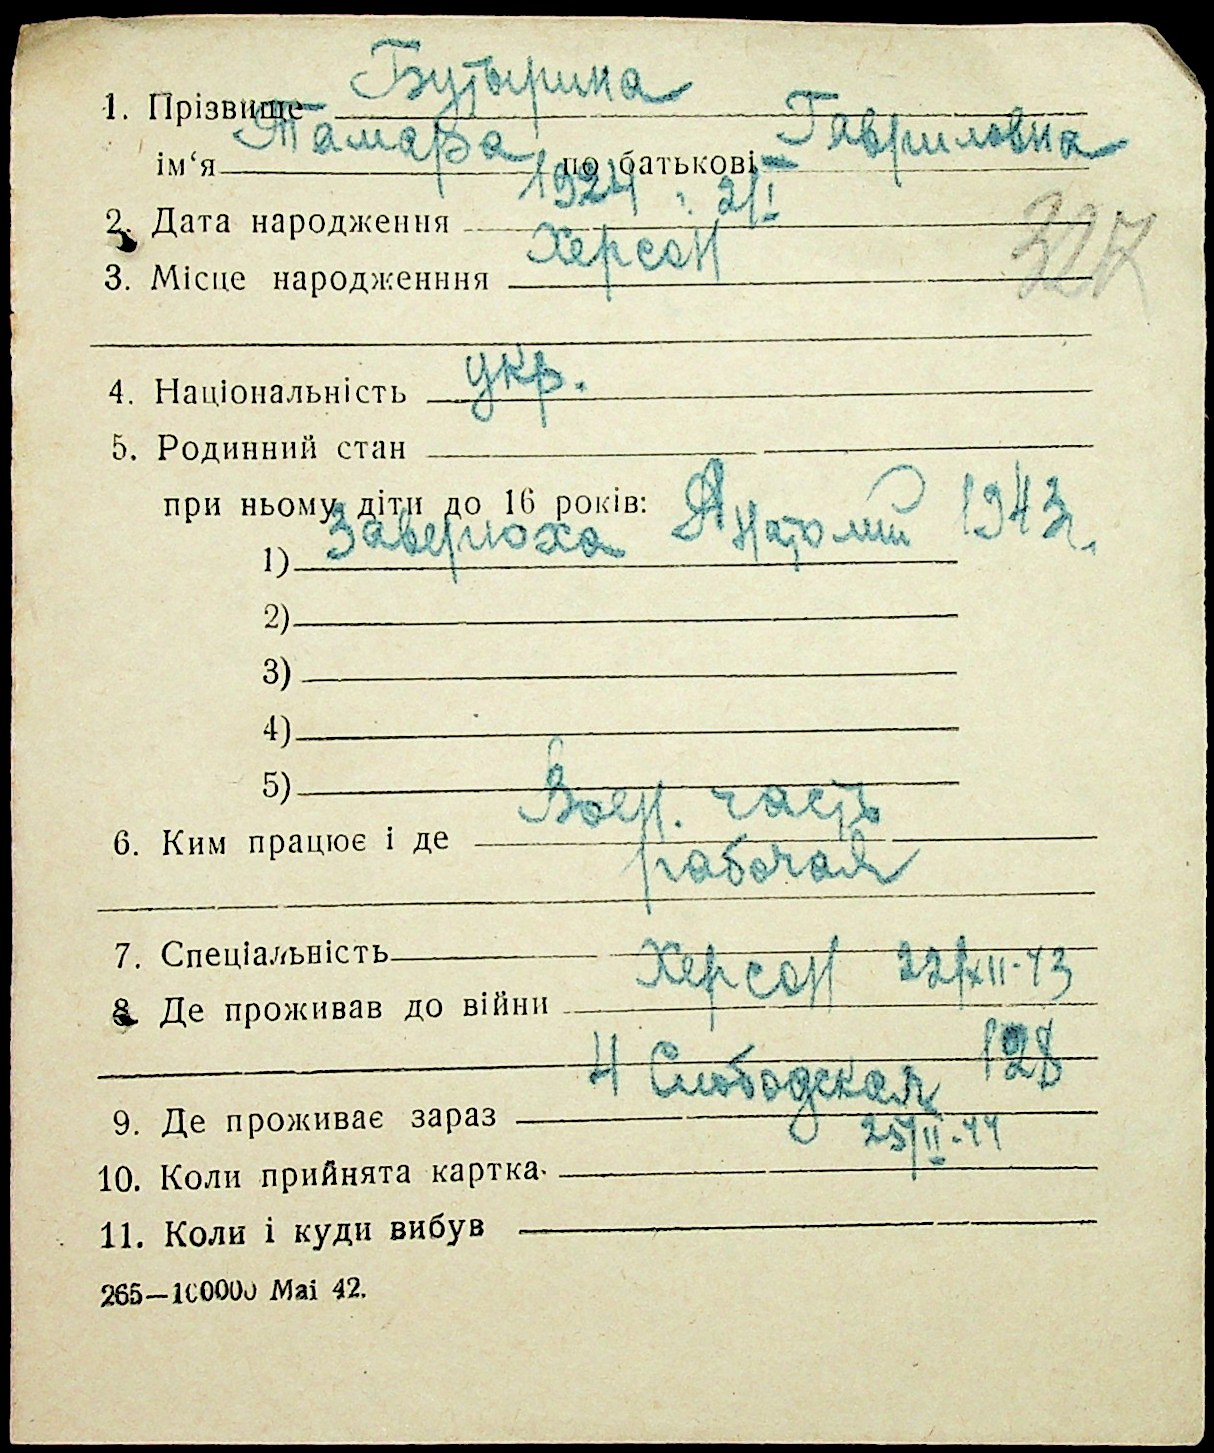 1. Прізвище Бутырина
ім‘я Тамара по батькові Гавриловна
2. Дата народження 1924 г. 2/I
3. Місце народженння Херсон
327
4. Національність укр.
5. Родинний стан
при ньому діти до 16 років:
1) Заверюха Анатолий 1943г.
2)
3)
4)
5)
6. Ким працює і де Воен. часть
рабочая
7. Спеціальність
8 Де проживав до війни Херсон 22/XII-43
9. Де проживає зараз 4 Слободская 128
10. Коли прийнята картка 25/II-44
11. Коли і куди вибув
265—100000 Mai 42.